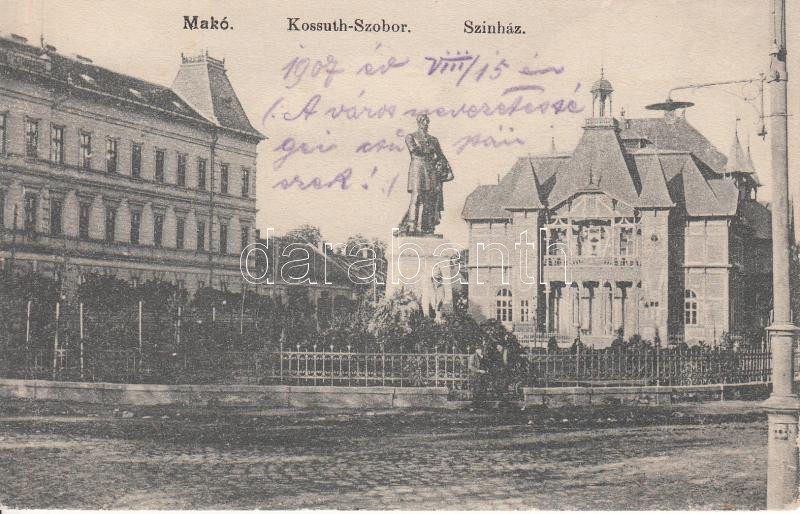 Makó. Kossuth-Szobor. Szinház.
1907 év VIII/15 én
(A város nevezetessé
gei
ezek!)
darabanth